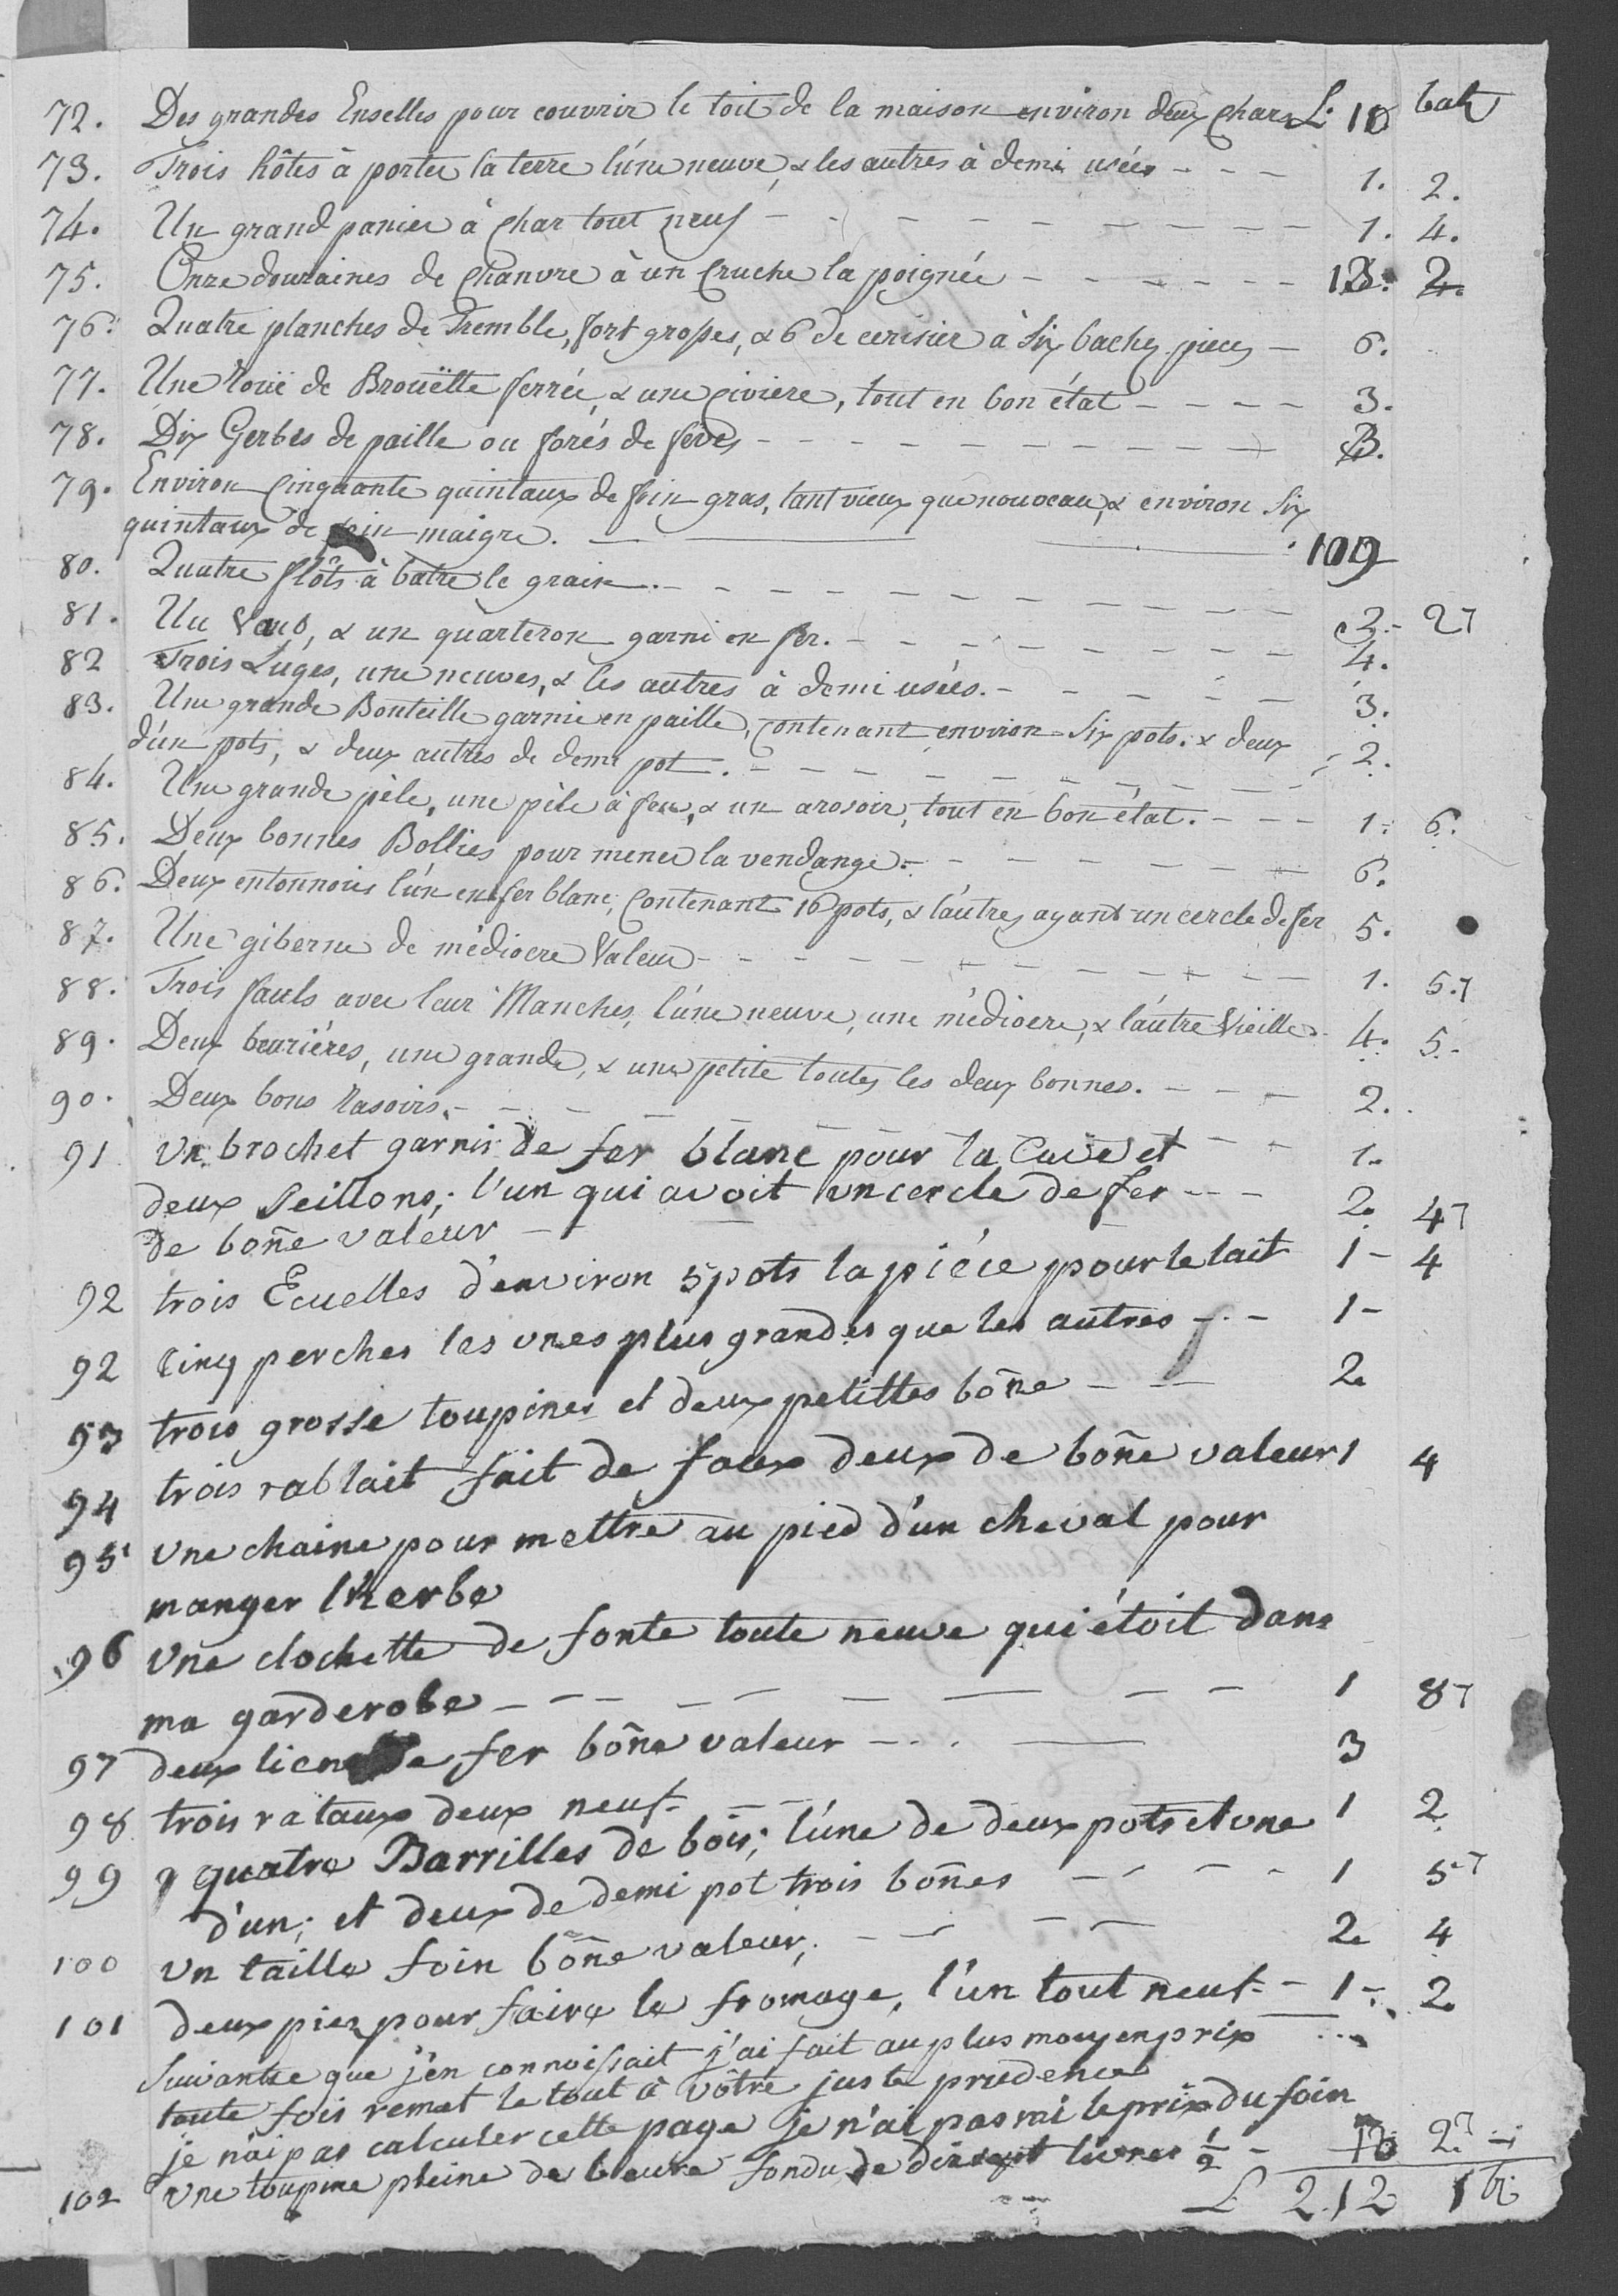 72. Des grandes Enselles pour couvrir le toit de la maison environ deux Chars L. 10 batz
73. Trois hôtes à porter la terre l'úne neuve, & les autres à demi usées - - - 1. 2.
74. Un grand panier à Char tout neuf - - - - - - - - - 1. 4.
75. Onze douzaines de Chanvre à un Cruche la poignée - - - - - - 2.
76. Quatre planches de Tremble, fort grosses, & 6 de cerisier à Six baches pieces - 6.
77. Une Rouë de Brouëtte ferrée, & une Civiere, tout en bon état - - - - 3.
78. Dix Gerbes de paille ou forés de feves - - - - - - - - -
79. Environ Cinquante quintaux de foin gras, tant vieux que nouveau, & environ Six
quintaux de foin maigre. - 109
80. Quatre flôts à batre le grain. - - - - - - - - - 2.- 27
81. Un Vans, & un quarteron garni en fer. - - - - - - - - 4.
82 Trois Luges, une neuves, & les autres à demi usées. - - - - - - 3.
83. Une grande Bouteille garnie en paille, Contenant environ Six pots. & deux
d'un pots, & deux autres de demi pot. - - - - - - - - 2.
84. Une grande pèle, une pèle à feu, & un arosoir, tout en bon état. - - - 1. 6.
85. Deux bonnes Bollies pour mener la vendange. - - - - - - - 6.
86. Deux entonnoirs l'ún en fer blanc, Contenant 16 pots, & l'autres ayant un cercle de fer 5.
87. Une giberne de médiocre Valeur - - - - - - - - - - 1. 5.7
88. Trois fauls avec leur Manches, l'úne neuve, une médiocre, & l'autre Vieille 4. 5.
89. Deux beurières, une grande, & une petite toutes les deux bonnes. - - - 2.
90. Deux bons Rasoirs. - - - - - - - - - 1.
91 un brochet garnis de fer blanc pour la Cuve et
deux Seillons; l'un qui avoit un cercle de fer - - - 2. 47
de boñe valeur - 1 - 4
92 trois Ecuelles d'environ 5 pots la piéce pour le lait 1 -
92 Cinq perches les unes plus grandes que les autres - . - 2
93 trois grosse toupines et deux petittes boñe - -
94 trois rablait fait de faux deux de boñe valeur 1 4
95 une chaine pour mettre au pied d'un cheval pour
manger l'herbe
96 une clochette de fonte toute neuve qui étoit dans
ma garderobe - - - - - - - - - 1 87
97 deux liens de fer boñe valeur - . . - 3
98 trois rataux deux neuf - - - 1 2
99 quatre Barrilles de bois; l'úne de deux pots et une
d'un; et deux de demi pot trois boñes - - - - 1 57
100 un taille foin boñe valeur; - - - - 2 4
101 deux piez pour faire le fromage, l'un tout neuf - 1 - 2
Suivantse que j'en connoissait j'ai fait au plus moyen prix
toute fois remet le tout à vôtre juste prudence
je n'ai pas calculer cette page je n'ai pas mi le prix du foin
102 une toupine pleine de beurre fondu de livres ½ - 10 27
L 212 1 bz